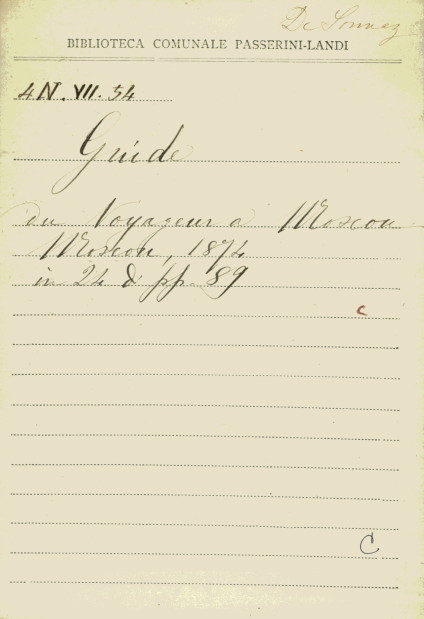 De Sonnaz
BIBLIOTECA COMUNALE PASSERINI-LANDI
4N. VII. 54
Guide
du Voyageur a Moscou
Moscou, 1874
in 24 di pp. 89
c
C